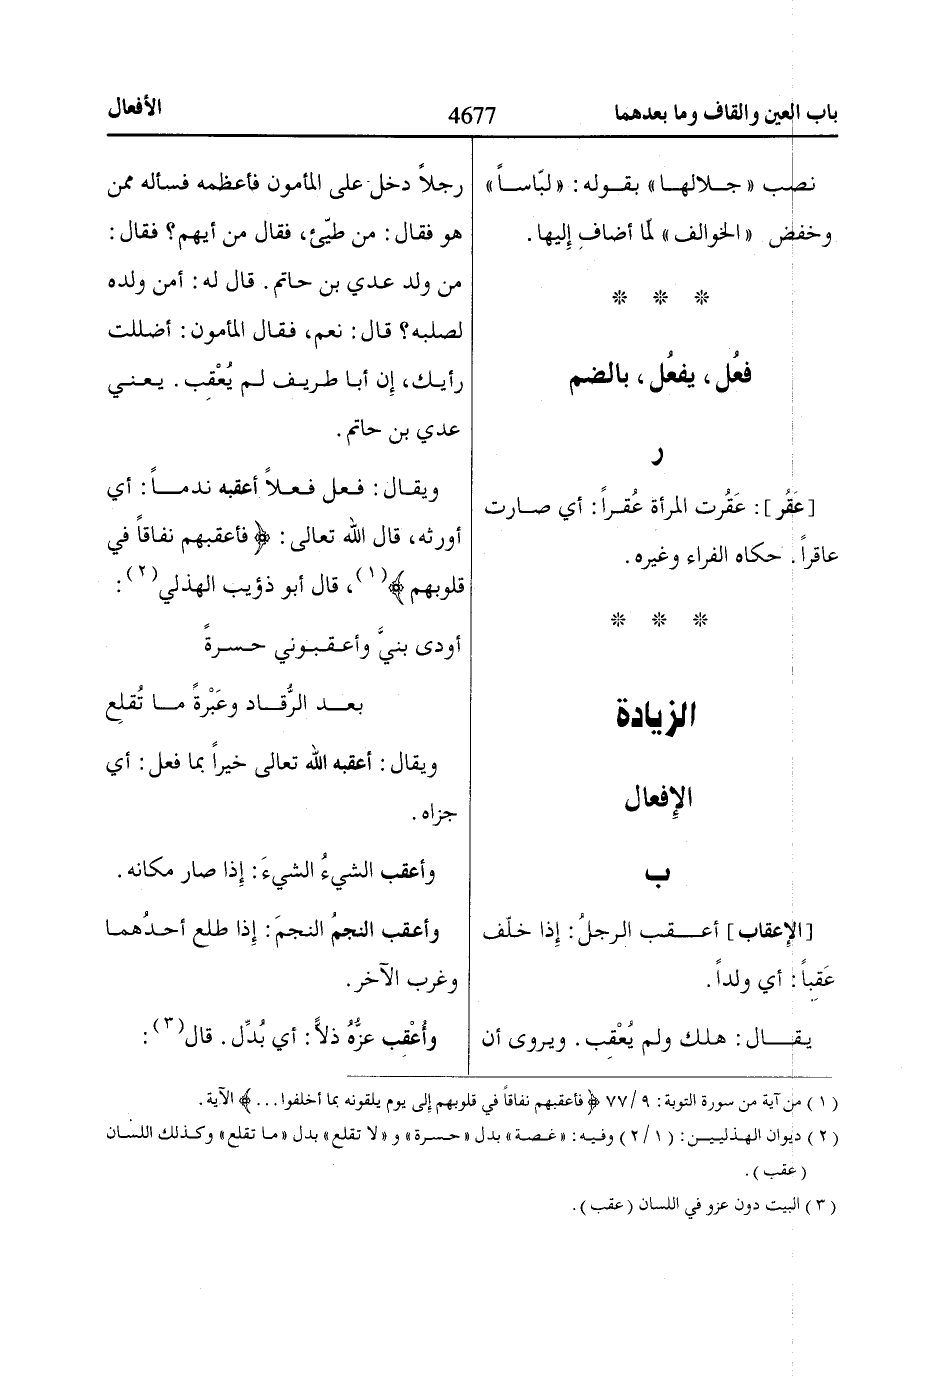 باب العين والقاف وما بعدهما
4677
الأفعال
نصب «جـلالهـا» بقـوله: «لبّاسـاً»
وخفض «الخوالف» لمّا أضاف إليها.
❊ ❊ ❊
فعُل، يفعُل، بالضم
ر
[عَقُر]: عَقُرت المرأة عُقـراً: أي صـارت
عاقراً. حكاه الفراء وغيره.
❊ ❊ ❊
الزيادة
الإفعال
ب
[الإعقاب] أعـقـب الرجلُ: إذا خلّف
عَقِباً: أي ولداً.
يقـال: هلك ولم يُعْقِب. ويروى أن
رجلاً دخل على المأمون فأعظمه فسأله ممن
هو فقال: من طيّئ، فقال من أيهم؟ فقال:
من ولد عدي بن حاتم. قال له: أمن ولده
لصلبه؟ قال: نعم، فقال المأمون: أضللت
رأيك، إن أبا طريف لم يُعْقِب. يعني
عدي بن حاتم.
ويقال: فعل فعلاً أعقبه ندمـاً: أي
أورثه، قال الله تعالى: ﴿فأعقبهم نفاقاً في
قلوبهم﴾(١)، قال أبو ذؤيب الهذلي(٢):
أودى بنيَّ وأعقبوني حسرةً
بعـد الرُّقـاد وعَبْرةً مـا تُقلِع
ويقال: أعقبه الله تعالى خيراً بما فعل: أي
جزاه.
وأعقب الشيءُ الشيءَ: إذا صار مكانه.
وأعقب النجمُ النجمَ: إذا طلع أحدُهما
وغرب الآخر.
وأُعْقِب عزُّهُ ذلاً: أي بُدِّل. قال(٣):
(١) من آية من سورة التوبة: ٩/ ٧٧ ﴿فأعقبهم نفاقاً في قلوبهم إلى يوم يلقونه بما أخلفوا...﴾ الآية.
(٢) ديوان الهذليين: (١/ ٢) وفيه: «غصة» بدل «حسرة» و «لا تقلع» بدل «ما تقلع» وكذلك اللسان
(عقب).
(٣) البيت دون عزو في اللسان (عقب).